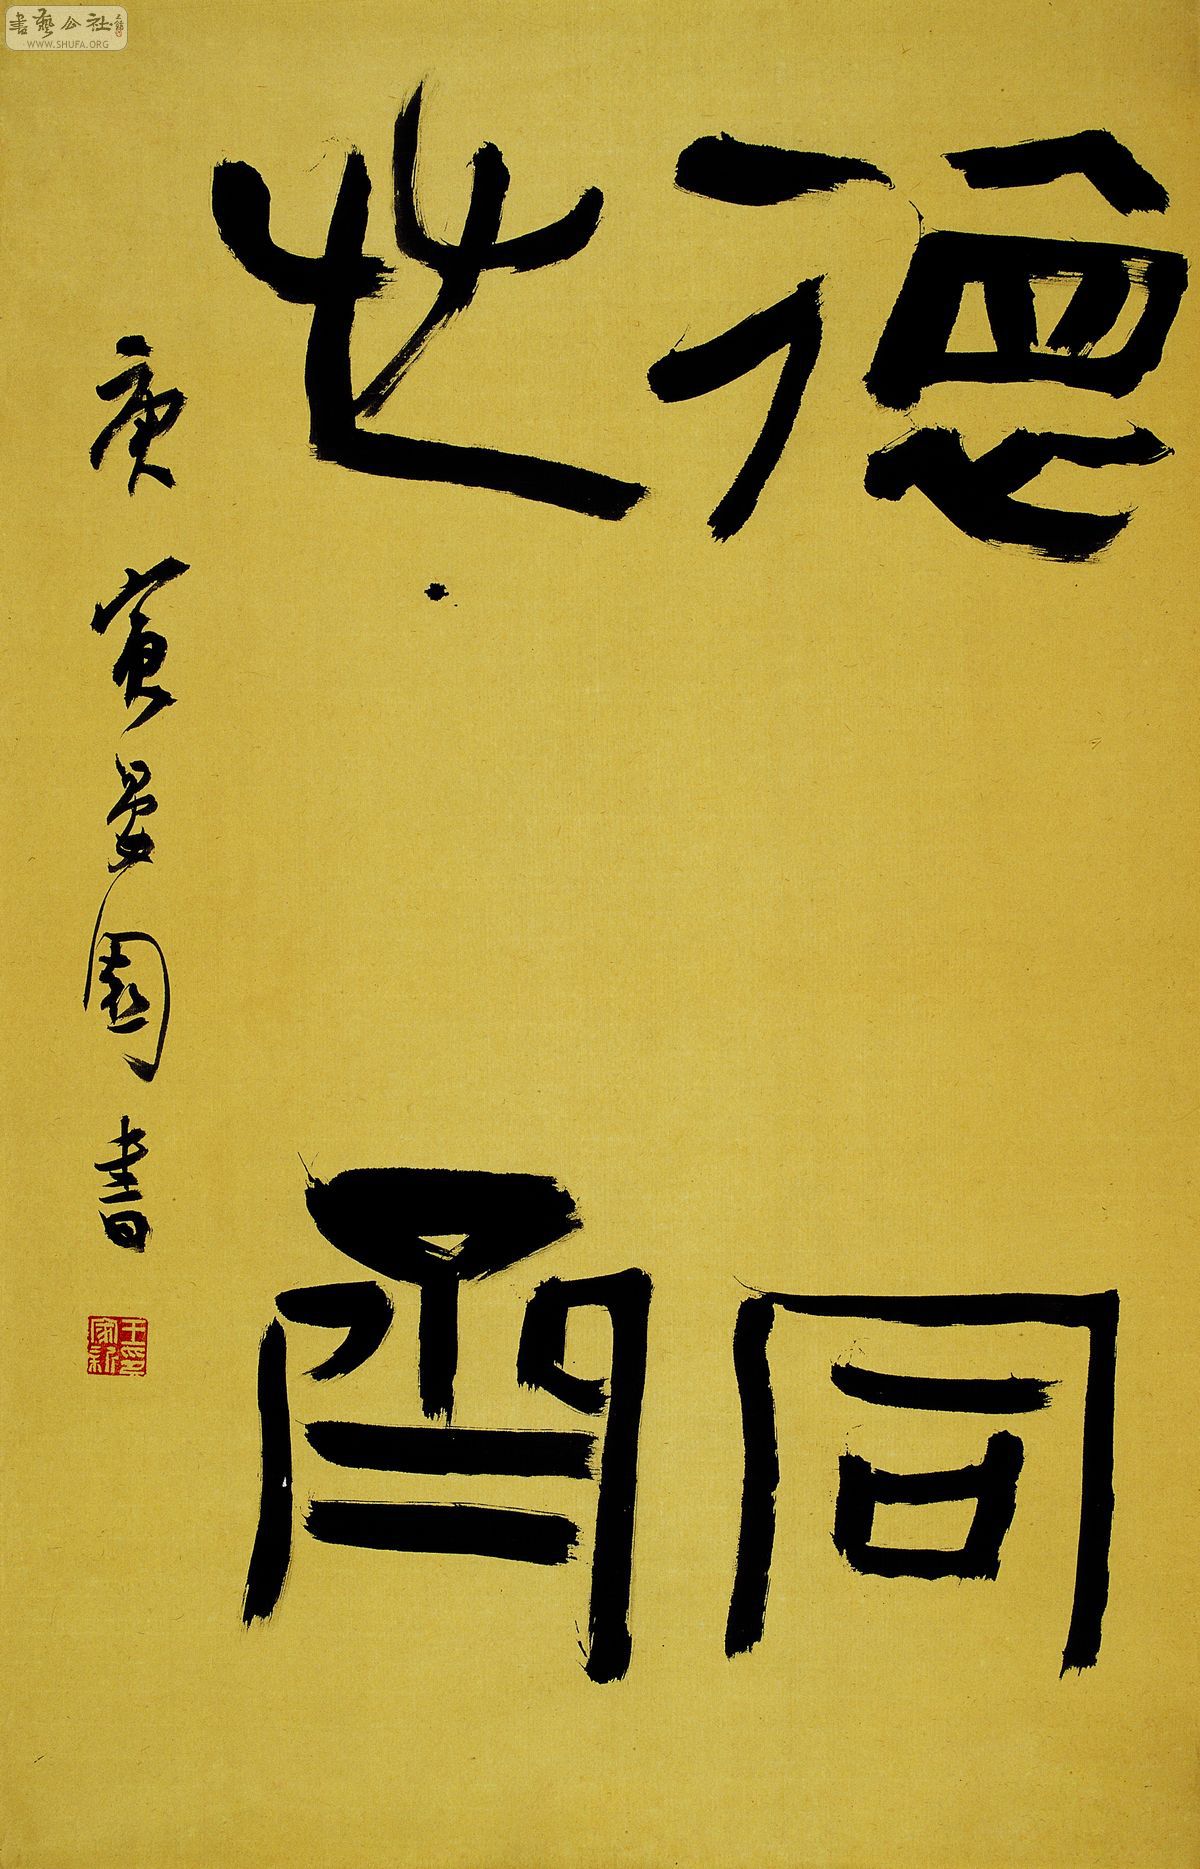 書藝公社
WWW.SHUFA.ORG
德同
世齊
庚寅曼園書
王家新印